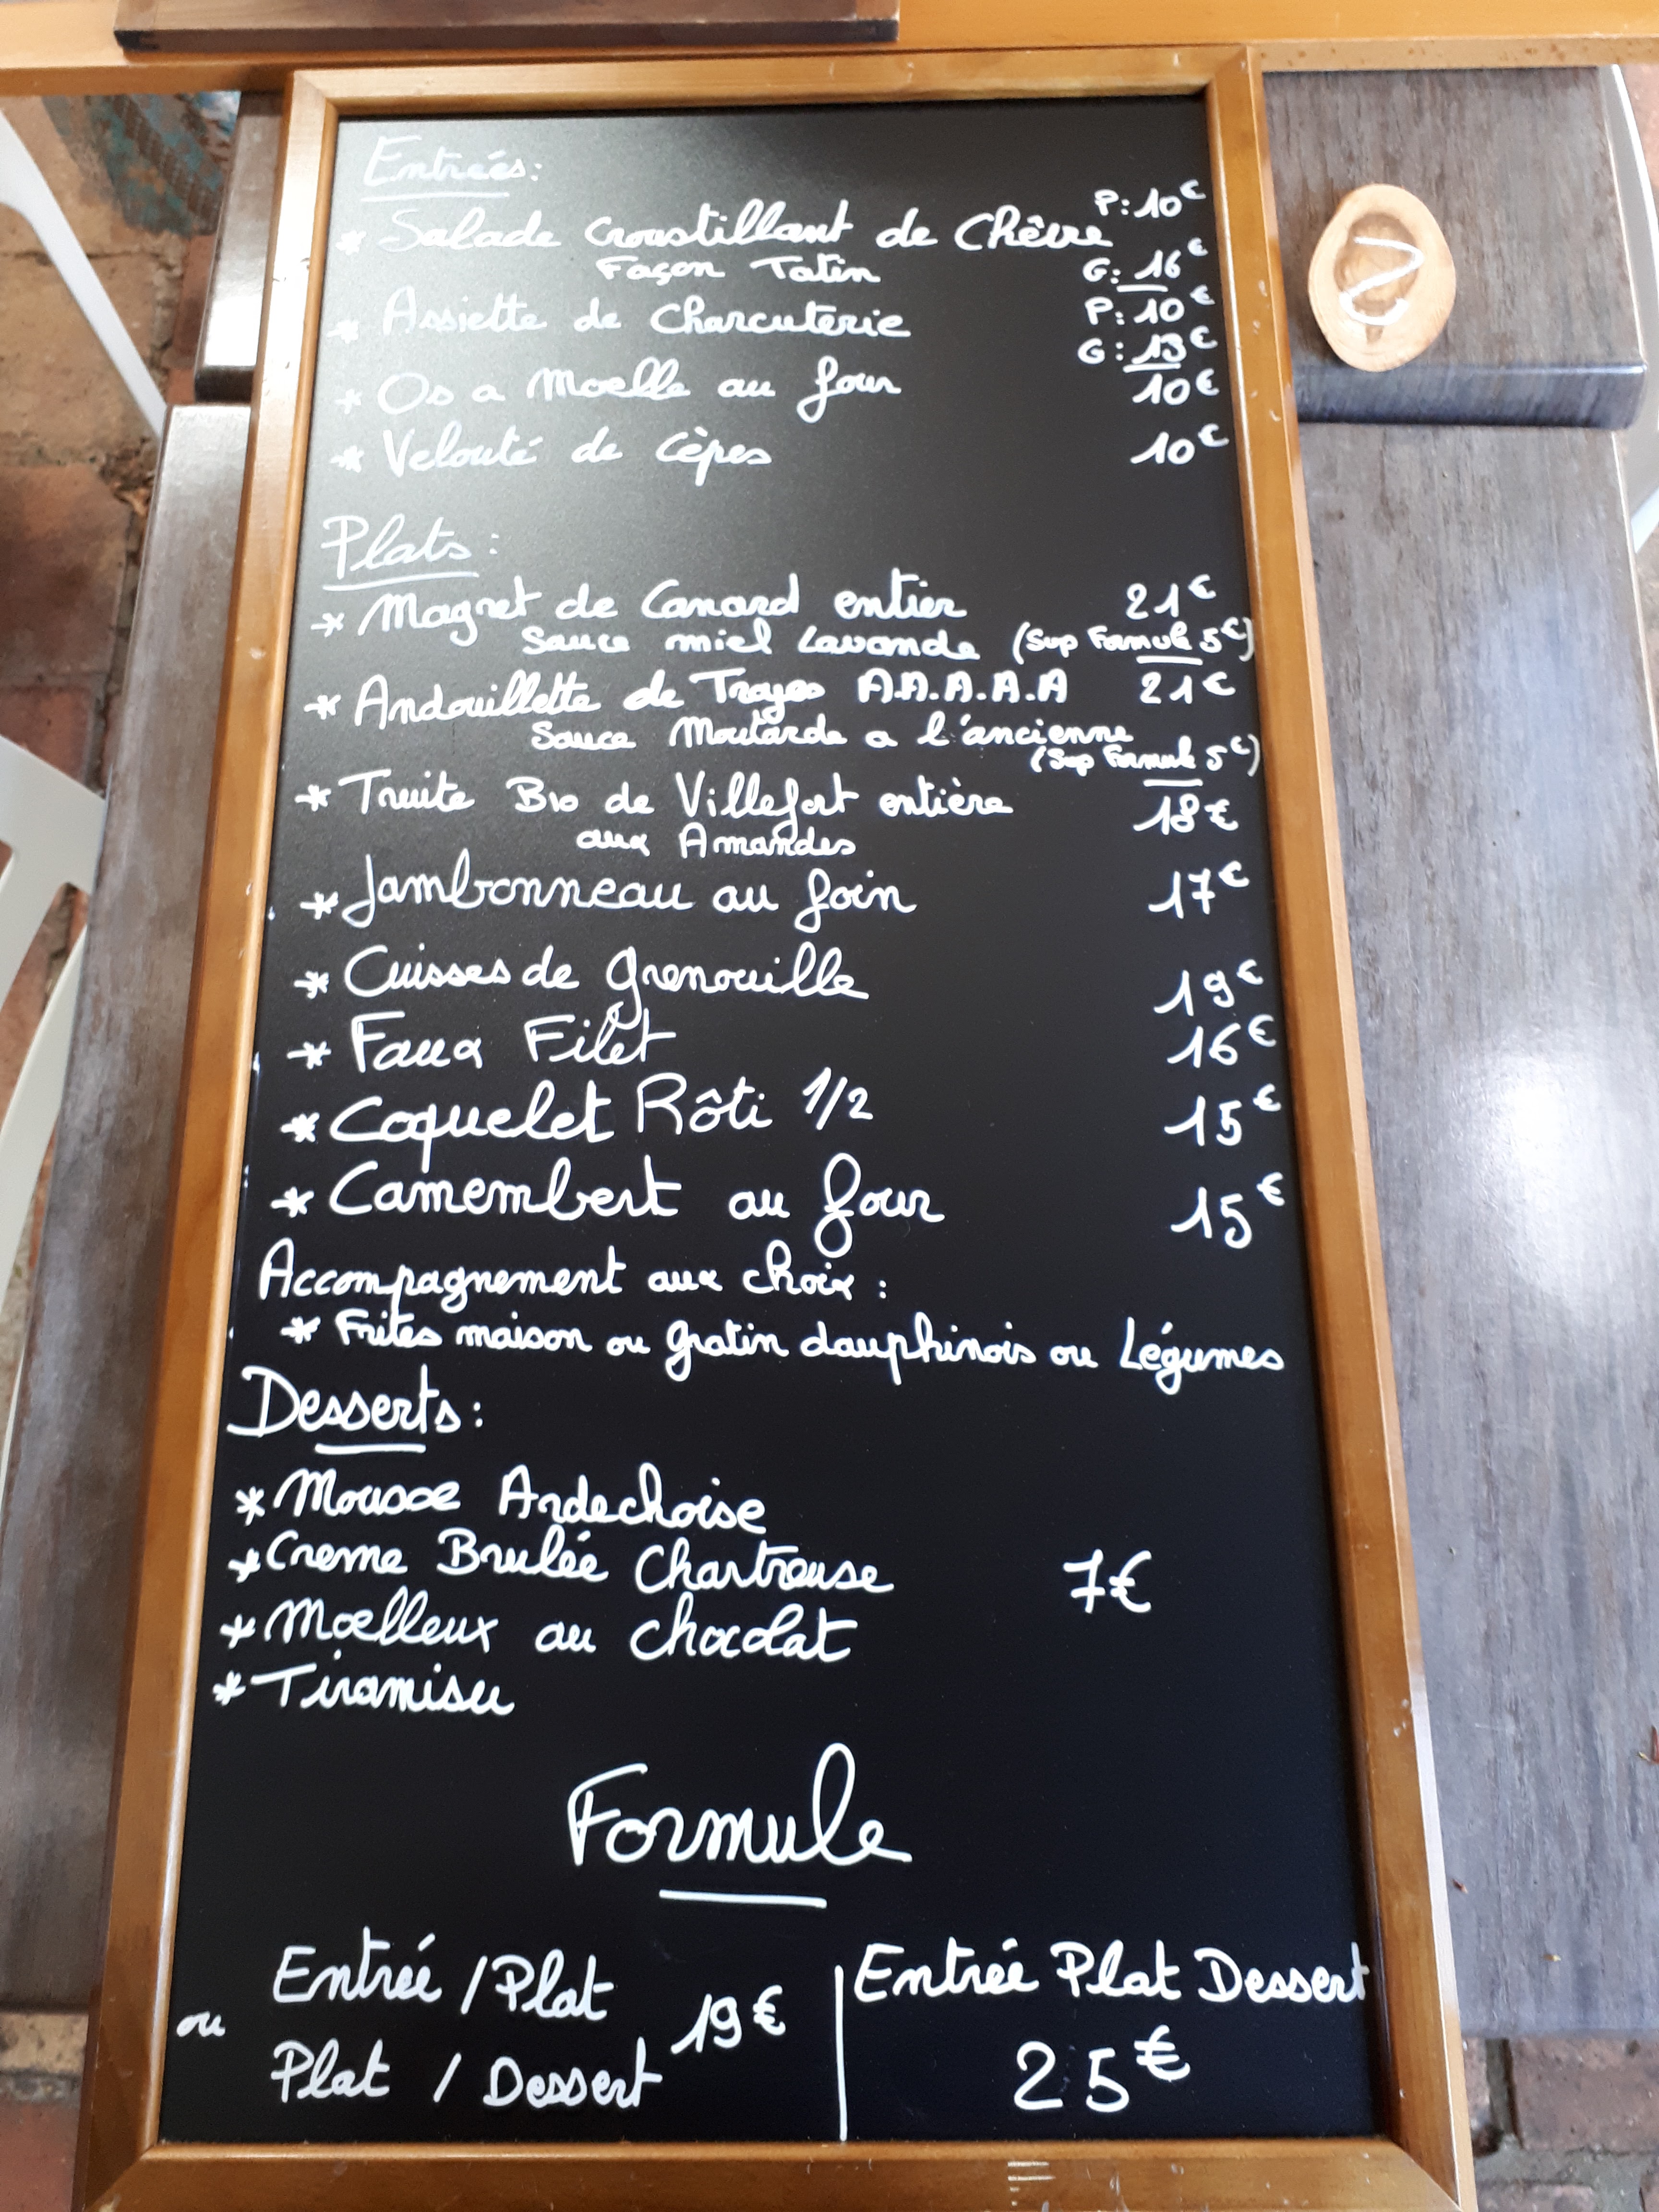 Entrées:
* Salade Croustillant de Chèvre P: 10€
Façon Tatin G: 16€
* Assiette de Charcuterie P: 10€
G: 13€
* Os a Moelle au four 10€
* Velouté de Cèpes 10€
Plats:
* Magret de Canard entier 21€
Sauce miel Lavande (Sup Formule 5€)
* Andouillette de Troyes A.A.A.A.A 21€
Sauce Moutarde a l'ancienne
(Sup Formule 5€)
* Truite Bio de Villefort entière 18€
aux Amandes
* Jambonneau au foin 17€
* Cuisses de grenouille 19€
* Faux Filet 16€
* Coquelet Rôti 1/2 15€
* Camembert au four 15€
Accompagnement aux choix :
* Frites maison ou gratin dauphinois ou Légumes
Desserts:
* Mousse Ardechoise
* Creme Brulée Chartreuse 7€
* Moelleux au chocolat
* Tiramisu
Formule
Entrée / Plat
ou 19€
Plat / Dessert
Entrée Plat Dessert
25€
2